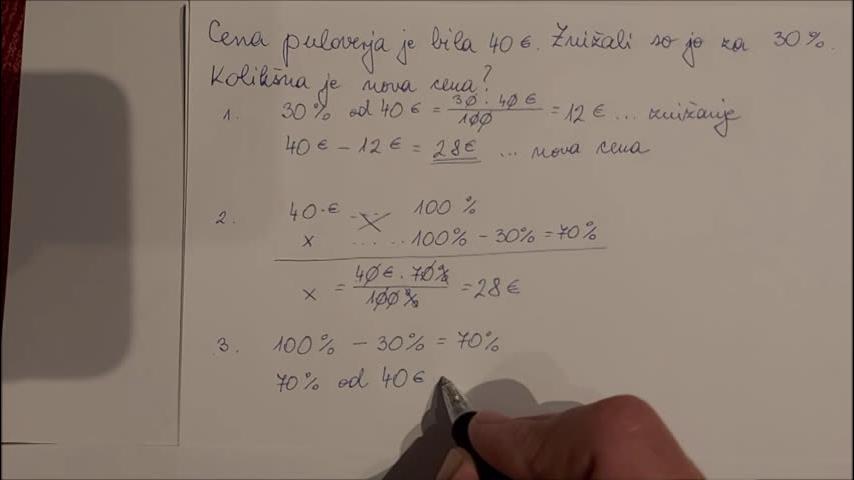 Cena puloverja je bila 40 €. Znižali so jo za 30%.
Kolikšna je nova cena?
1. 30% od 40 € = 30 · 40 € / 100 = 12 € ... znižanje
40 € - 12 € = 28 € ... nova cena
2. 40 € ...... 100 %
x ...... 100% - 30% = 70%
x = 40 € · 70 % / 100 % = 28 €
3. 100% - 30% = 70%
70% od 40 €